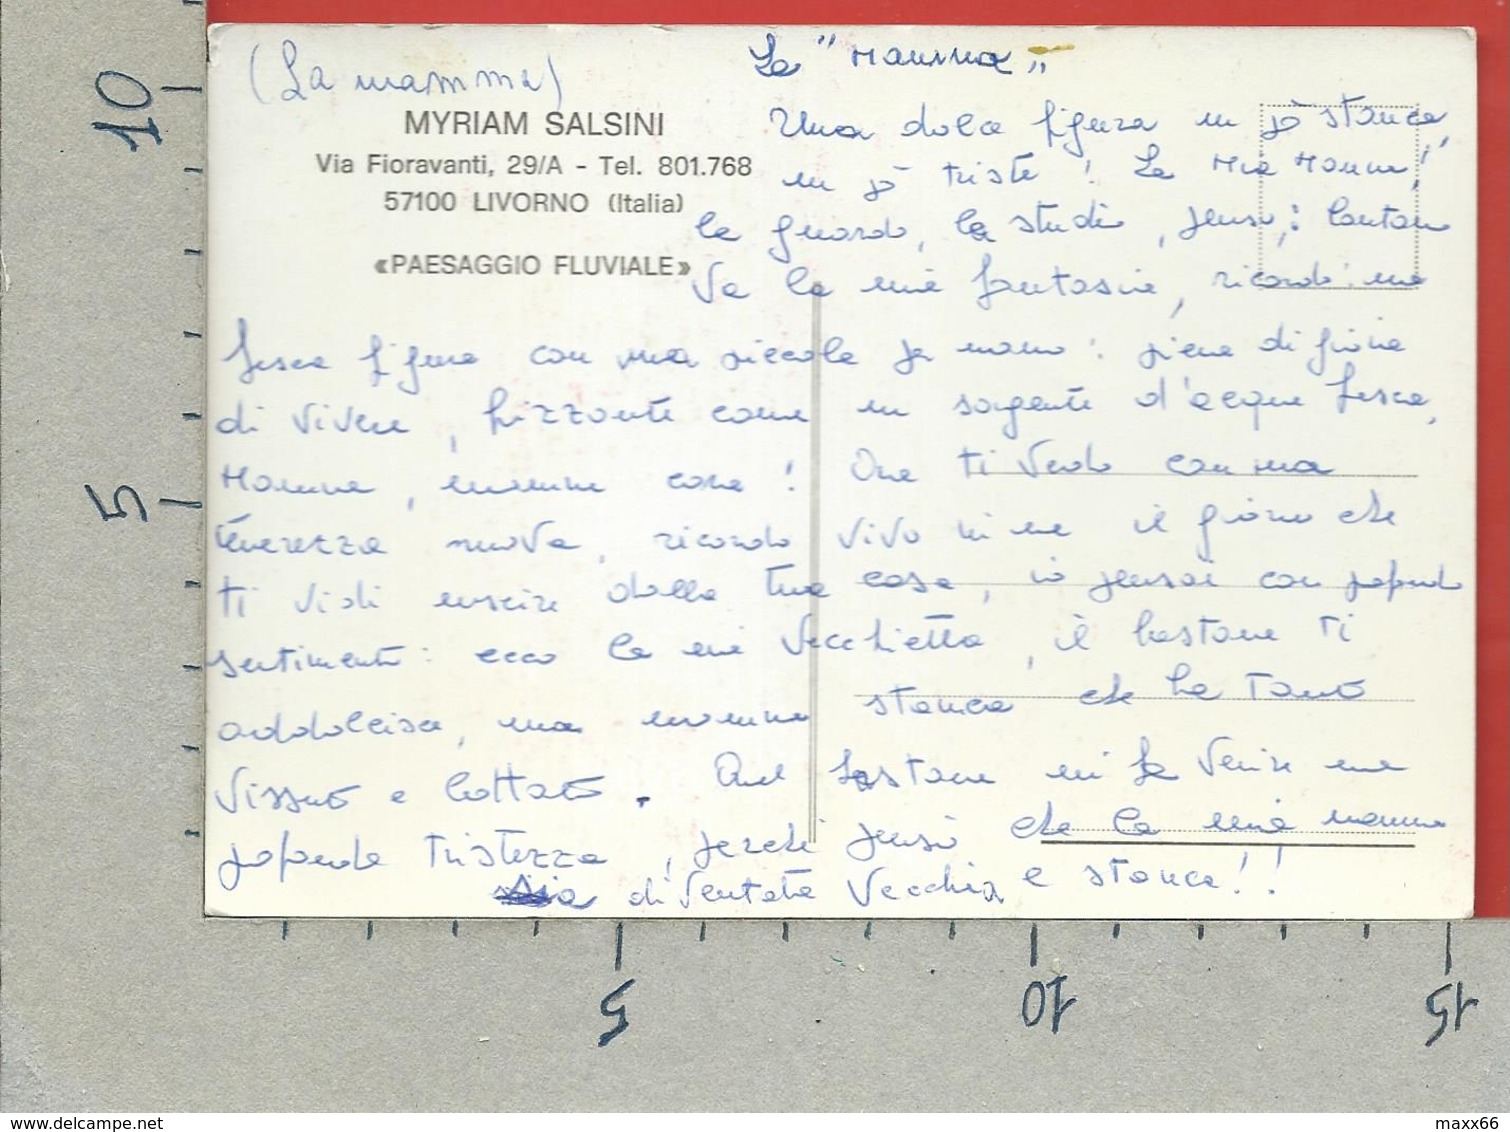 (La mamma)
La "Mamma"
MYRIAM SALSINI
Via Fioravanti, 29/A - Tel. 801.768
57100 LIVORNO (Italia)
«PAESAGGIO FLUVIALE»
Una dolce figura un pò stanca,
un pò triste! La mia mamma!
la guardo, la studio, penso; lontano
va la mia fantasia, ricordo: una
fresca figura con una piccola per mano: piena di gioia
di vivere, frizzante come un sorgente d'acqua fresca,
Mamma, mamma cara! Ora ti vedo con una
tenerezza nuova, ricordo vivo in me il giorno che
ti vidi uscire dalla tua casa, io pensai con profondo
sentimento: ecco la mia vecchietta, il bastone ti
addolcisce, una mamma stanca che ha tanto
vissuto e lottato. Quel bastone mi fa venire una
profonda tristezza, perché penso che la mia mamma
è diventata vecchia e stanca!!
10
5
5
10
15
delcampe.net
maxx66